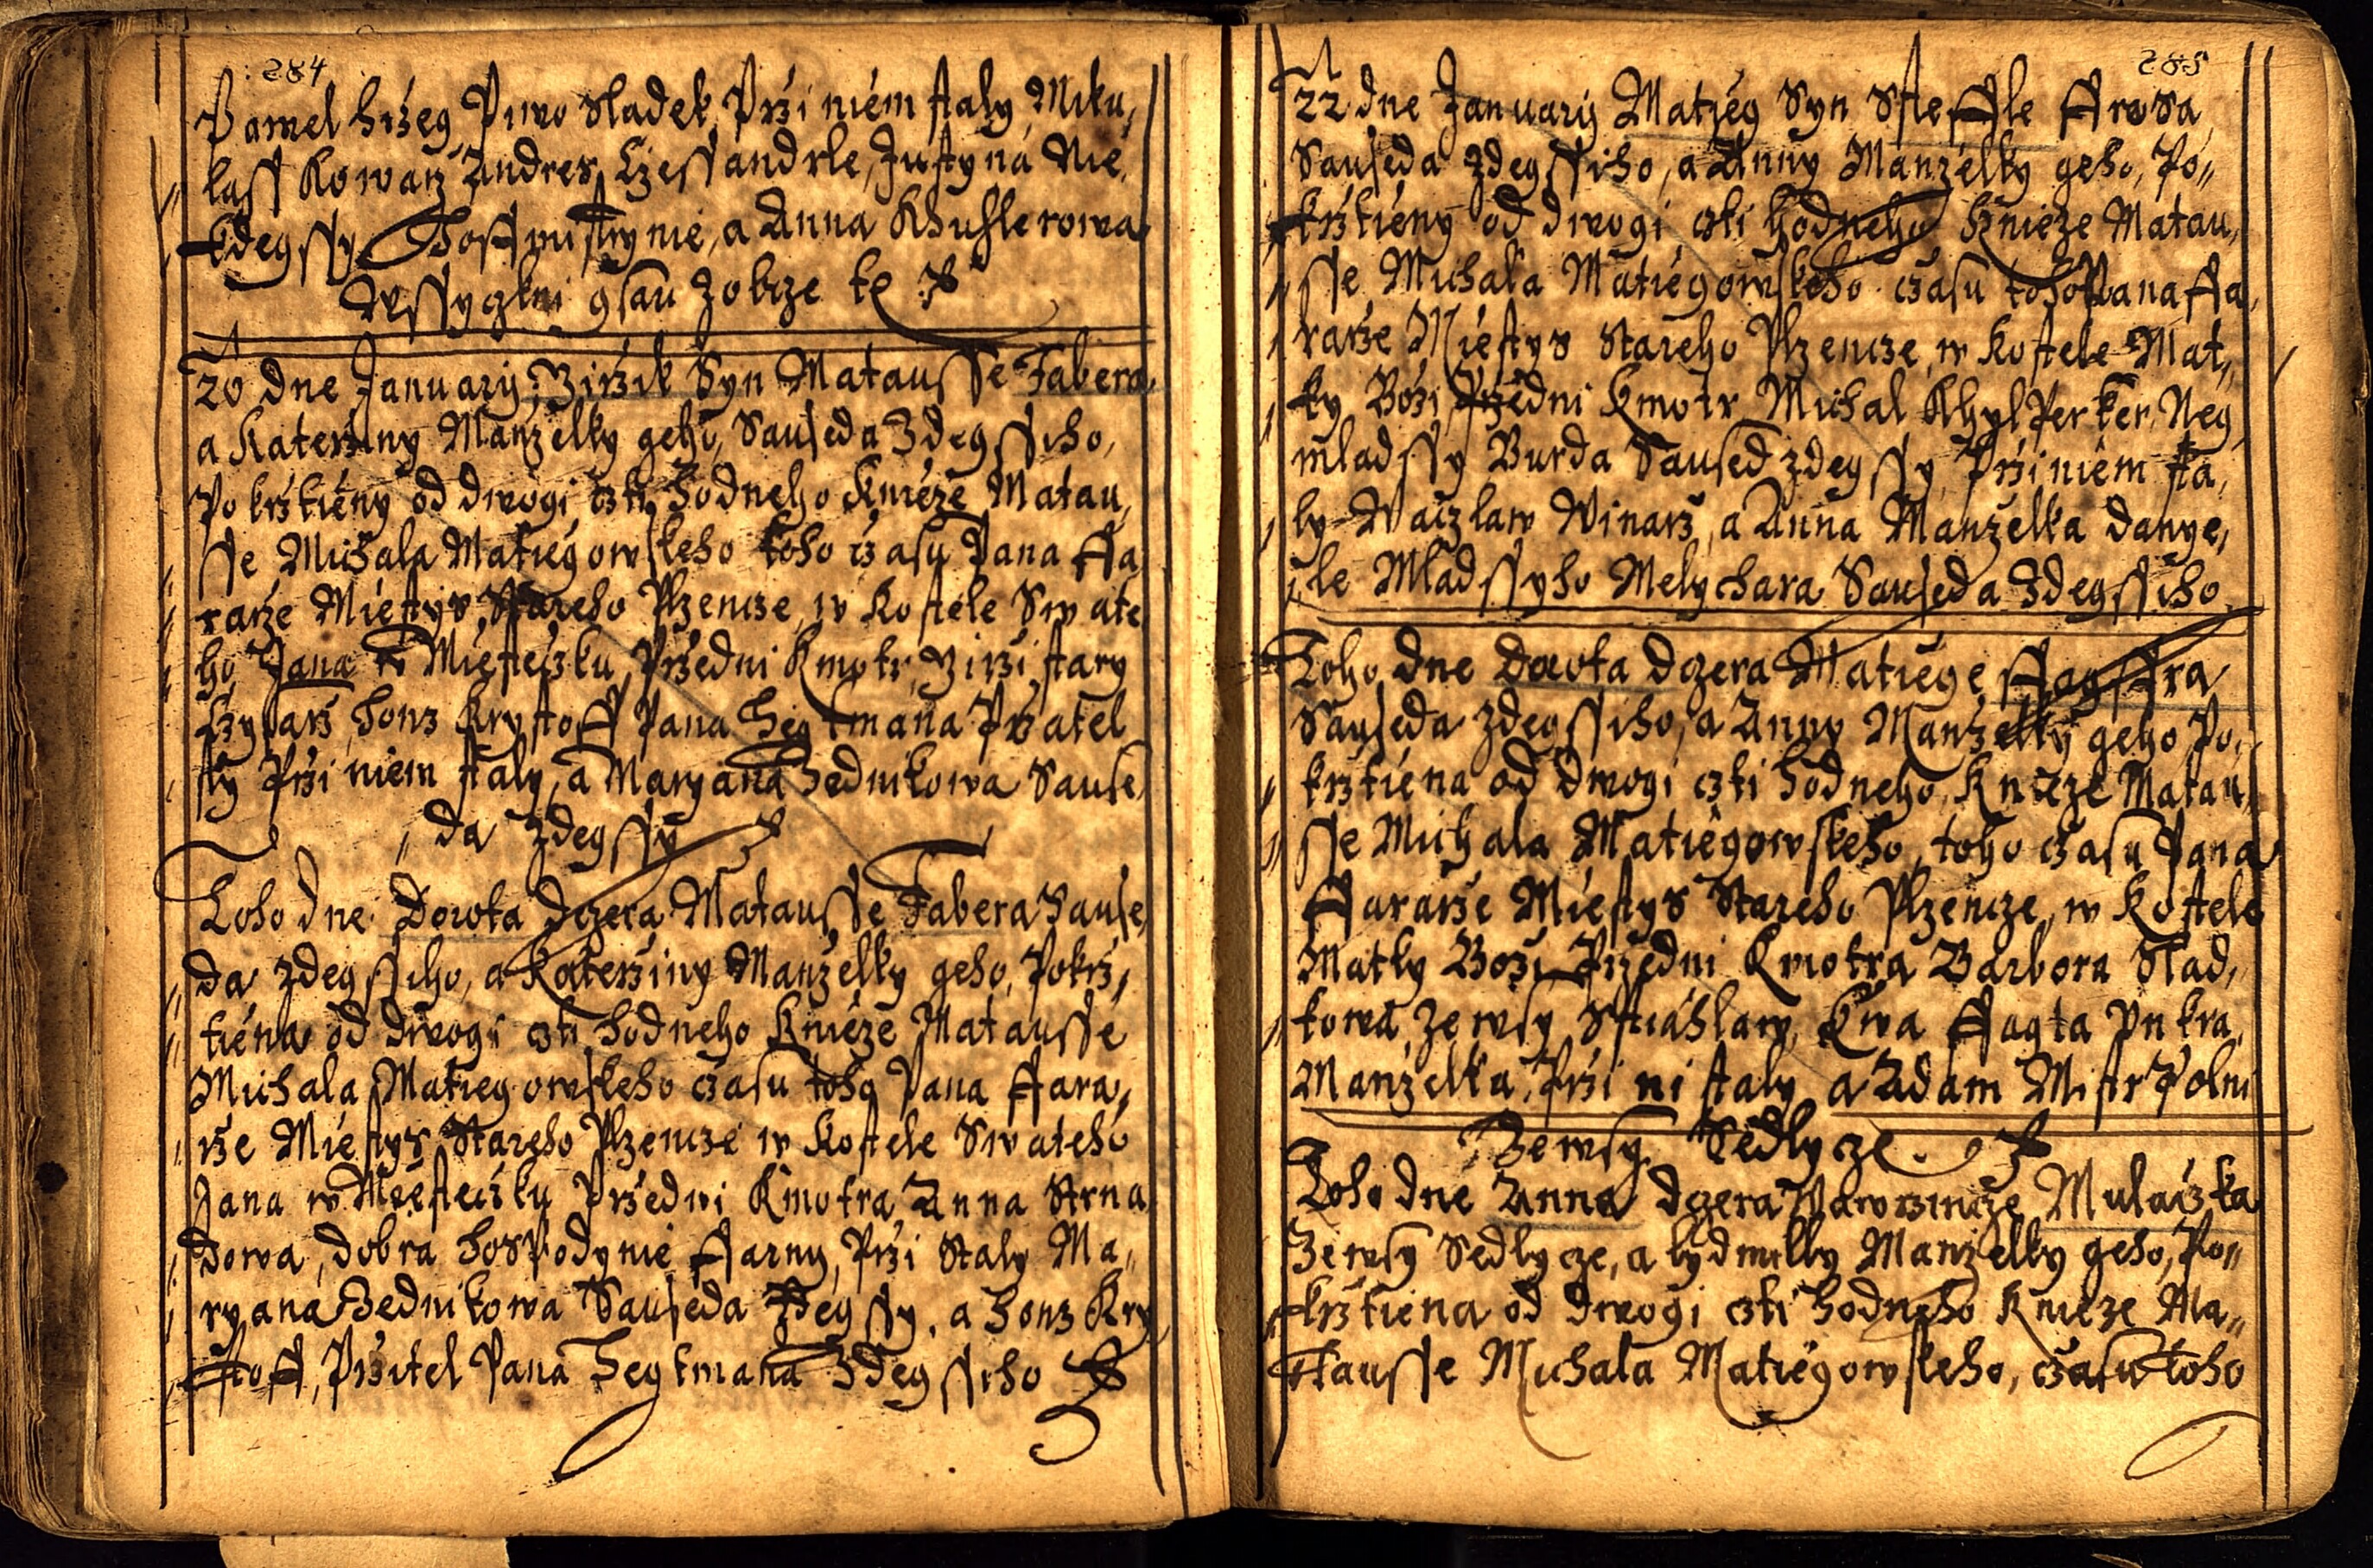 284
Pawel hržeg Piwo Sladek, Prži niem staly Miku,
lass Kowarž Andres Czessandrle, Justyna Nie,
kdegssy Hoffmistrynie, a Anna Khuhlerowa
Wssyczkni gsau z obcze te
20 dne January, Giržik Syn Matausse Fabera
a Kateržiny Manželky geho, Sauseda Zdegssiho,
Pokržtieny od dwogi czti hodneho Knieze Matau,
sse Michala Matiegowskeho toho času Pana Fa
rarže Miestys Stareho Plzencze, w Kostele Swate
ho Jana w Miesteczku, Pržedni Kmotr, Girži stary
Czyharž, honz Krystoff Pana hegtmana Pržatel
sty Prži niem staly, a Maryana Bednikowa Sause,
da zdegssy
Toho dne Dorota dczera Matausse Fabera Sause,
da zdegssiho, a Kateržiny Manželky geho, Pokrž,
tiena od dwogi czti hodneho Knieze Matausse
Michala Matiegowskeho czasu toho Pana Fara,
rže Miestys Stareho Plzencze w Kostele Swateho
Jana w Miesteczku Pržedni Kmotra Anna Strna
dowa, dobra hospodynie Farny, Prži Staly Ma,,
ryana Bednikowa Sauseda Zdegssy, a honz Kry
stoff, Pržitel Pana hegtmana Zdegssiho
285
22 dne January Matieg Syn Steffle Frosa
Sauseda zdegssiho, a Anny Manželky geho, Po,,
kržtieny od dwogi czti hodneho Knieze Matau,
sse Michala Matiegowskeho czasu toho Pana Fa,
rarže Miestys Stareho Plzencze, w Kostele Mat,,
ky Boži Pržedni Kmotr Michal Khylperker, Neg
mladssy Burda Saused zdegssy, Prži niem sta,
ly Waczlaw Winarž, a Anna Manželka Danye,
le Mladssyho Melychara Sauseda Zdegssiho
Toho dne Dorota dczera Matiege Fagffra
Sauseda zdegssiho, a Anny Manželky geho Po,
kržtiena od dwogi czti hodneho Knieze Matau,
sse Michala Matiegowskeho, toho czasu Pana
Fararže Miestys Stareho Plzencze, w Kostele
Matky Boži, Pržedni Kmotra Barbora Slad,
kowa, ze wsy Stiahlaw, Ewa Fagta Punkra,
Manželka, Prži ni staly, a Adam Mistr Polni
Ze wsy Sedlycze.
Toho dne Anna dczera Wawržincze Mulaczka
Ze wsy Sedlycze, a Lydmilly Manželky geho, Po,,
kržtiena od dwogi czti hodneho Knieze Ma,,
tausse Michala Matiegowskeho, czasu toho